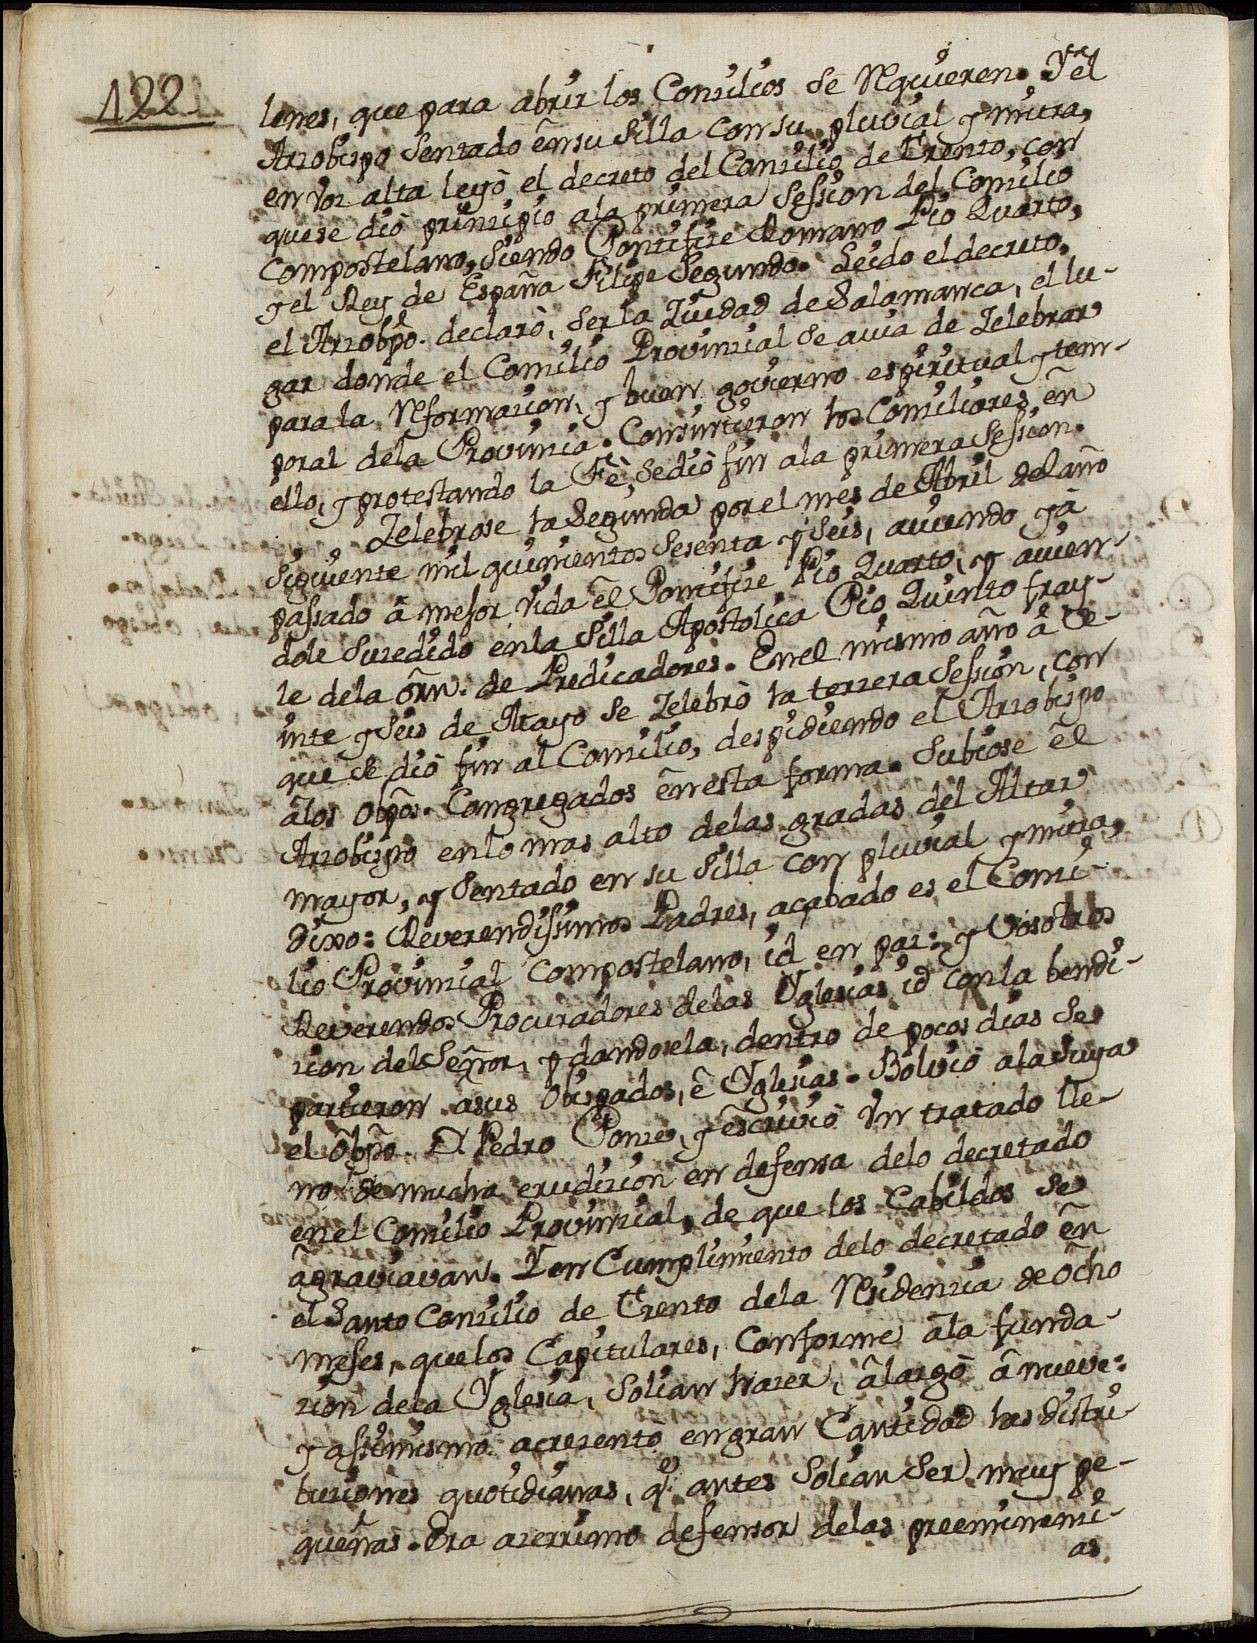 122
lenes, que para abrir los Conzilios se Requieren. Y el
Arzobispo sentado ẽn su silla con su pluvial y mitra,
en voz alta leyò el decreto del Conzilio de Trento, con
que se diò prinzipio a la primera session del Conzilio
Compostelano, siendo Pontifize Romano Pio Quarto,
y el Rey de España Filipe Segundo. Leido el decreto,
el Arzobpõ. declarò, ser la Ziudad de Salamanca, el lu-
gar donde el Conzilio Provinzial se avia de Zelebrar
para la Reformazion, y buen govierno espiritual y tem-
poral dela Provinzia. Consintieron los Conziliares ẽn
ello, y protestando la Fè, se diò fin a la primera session.
Zelebrose la segunda por el mes de Abril del año
siguiente mil quinientos sesenta y seis, aviendo yà
passado â mejor vida êl Pontifize Pio Quarto, y avien-
dole suzedido en la silla Apostolica Pio Quinto fray-
le dela õrn. de Predicadores. En el mismo año â Ve-
inte y seis de Mayo se Zelebrò la terzera session, con
que se diò fin al Conzilio, despidiendo el Arzobispo
âlos Obpõs. Congregados ẽn esta forma. Subiose êl
Arzobispo en lo mas alto delas gradas del Altar
mayor, y sentado en su silla con pluvial y mitra,
dixo: Reverendissimos Padres, acabado es el Conzi-
lio Provinzial Compostelano, id en paz: y vosotros
Reverendos Procuradores delas Yglesias id con la bendi-
zion del Señor, y dandosela, dentro de pocos dias se
partieron a sus Obispados, ê Yglesias. Bolviò a la suya
el Obpõ. D. Pedro Ponze, y escriviò Vn tratado lle-
no de mucha erudizion en defensa delo decretado
en el Conzilio Provinzial, de que los Cabildos se
âgraviavan. Y en Cumplimiento delo decretado ẽn
el Santo Conzilio de Trento dela Residenzia de ocho
meses, que los Capitulares, Conforme âla funda-
zion dela Yglesia, solian hazer, âlargò â nueve:
y assimismo acrezento en gran Cantidad las distri-
buziones quotidianas, q̃. antes solian ser muy pe-
queñas. Era azerrimo defensor delas preeminenzi-
as